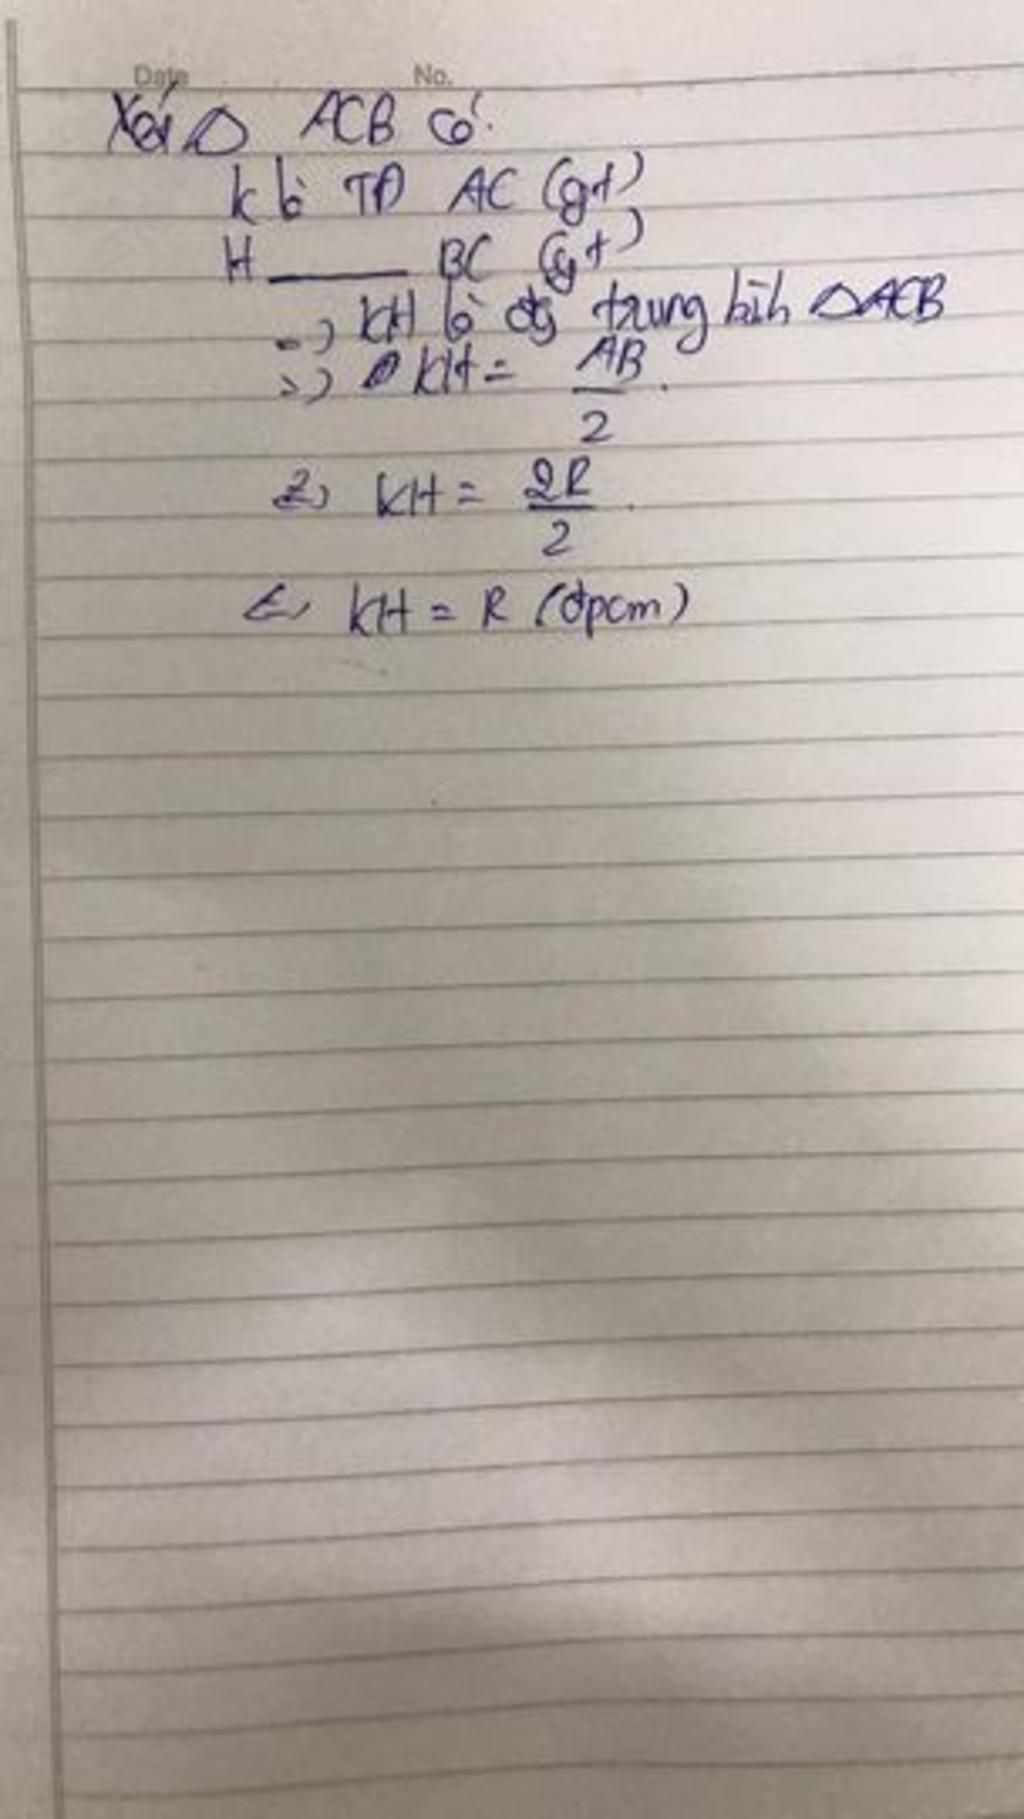 Date No.
Xét △ ACB có:
K là TĐ AC (gt)
H ——— BC (gt)
=> KH là đg trung bình △ACB
=> KH = AB/2.
=> KH = 2R/2.
<=> KH = R (đpcm)